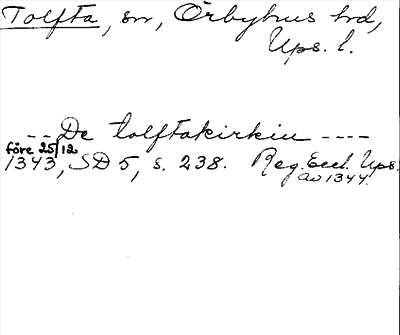 Tolfta, sn, Örbyhus hd,
Ups. l.
-- De tolftakirkiu ----
före 25/12
1343, SD 5, s. 238. Reg. Eccl. Ups.
av 1344.